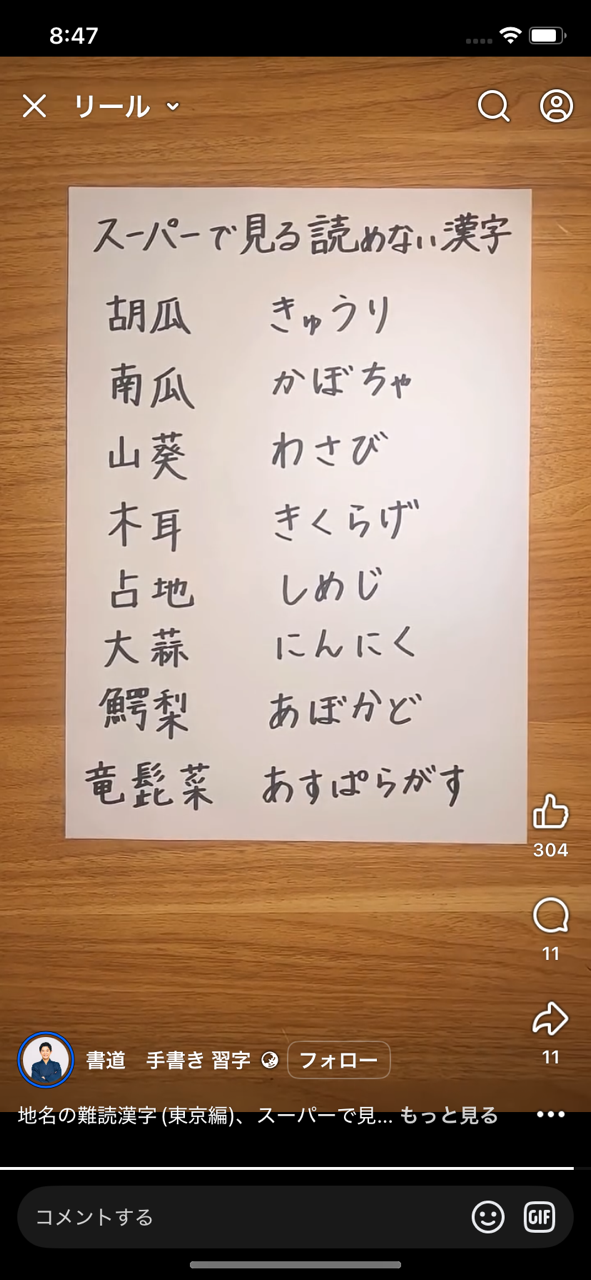 8:47
リール
スーパーで見る読めない漢字
胡瓜 きゅうり
南瓜 かぼちゃ
山葵 わさび
木耳 きくらげ
占地 しめじ
大蒜 にんにく
鰐梨 あぼかど
竜髭菜 あすぱらがす
304
11
11
書道 手書き 習字 フォロー
地名の難読漢字(東京編)、スーパーで見... もっと見る
コメントする
GIF